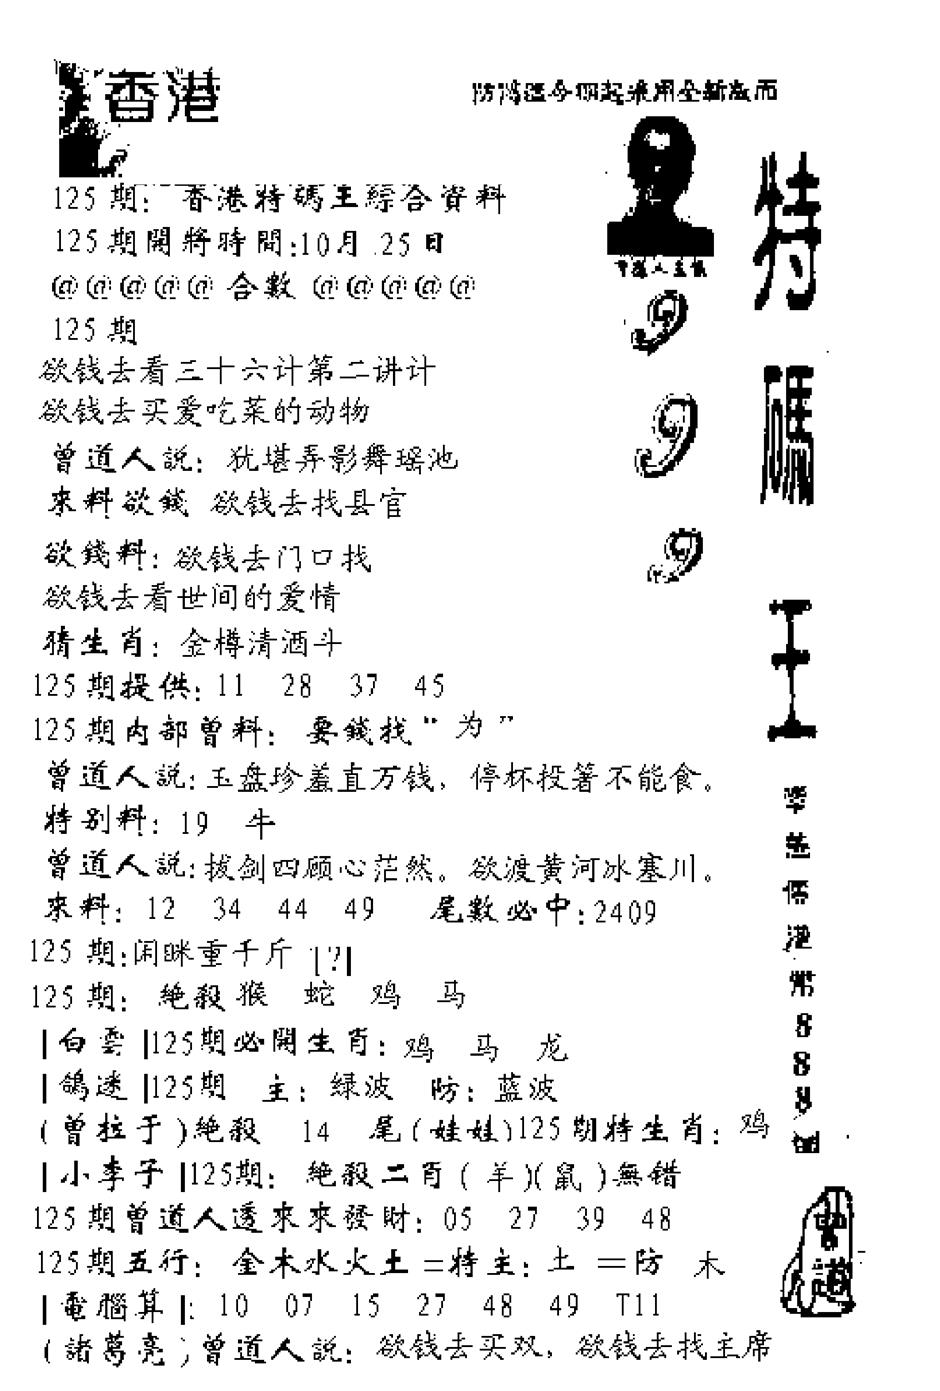 香港
特碼王
999
125期: 香港特碼王綜合資料
125期開將時間:10月.25日
@@@@@ 合數 @@@@@
125期
欲钱去看三十六计第二讲计
欲钱去买爱吃菜的动物
曾道人説: 犹堪弄影舞瑶池
來料欲錢 欲钱去找县官
欲錢料: 欲钱去门口找
欲钱去看世间的爱情
猜生肖: 金樽清酒斗
125期提供: 11 28 37 45
125期内部曾料: 要錢找“为”
曾道人説:玉盘珍羞直万钱, 停杯投箸不能食。
特别料: 19 牛
曾道人説:拔剑四顾心茫然。欲渡黄河冰塞川。
來料: 12 34 44 49 尾數必中:2409
125期:闲眯重千斤 |?|
125期: 絶殺 猴 蛇 鸡 马
|白雲|125期必開生肖: 鸡 马 龙
|鴿迷|125期 主: 绿波 防: 蓝波
(曾拉于)絶殺 14 尾(娃娃)125期特生肖: 鸡
|小李子|125期: 絶殺二肖(羊)(鼠)無错
125期曾道人透來來發財: 05 27 39 48
125期五行: 金木水火土=特主: 土 =防 木
|電腦算|: 10 07 15 27 48 49 T11
(諸葛亮)曾道人説: 欲钱去买双, 欲钱去找主席
港幣888